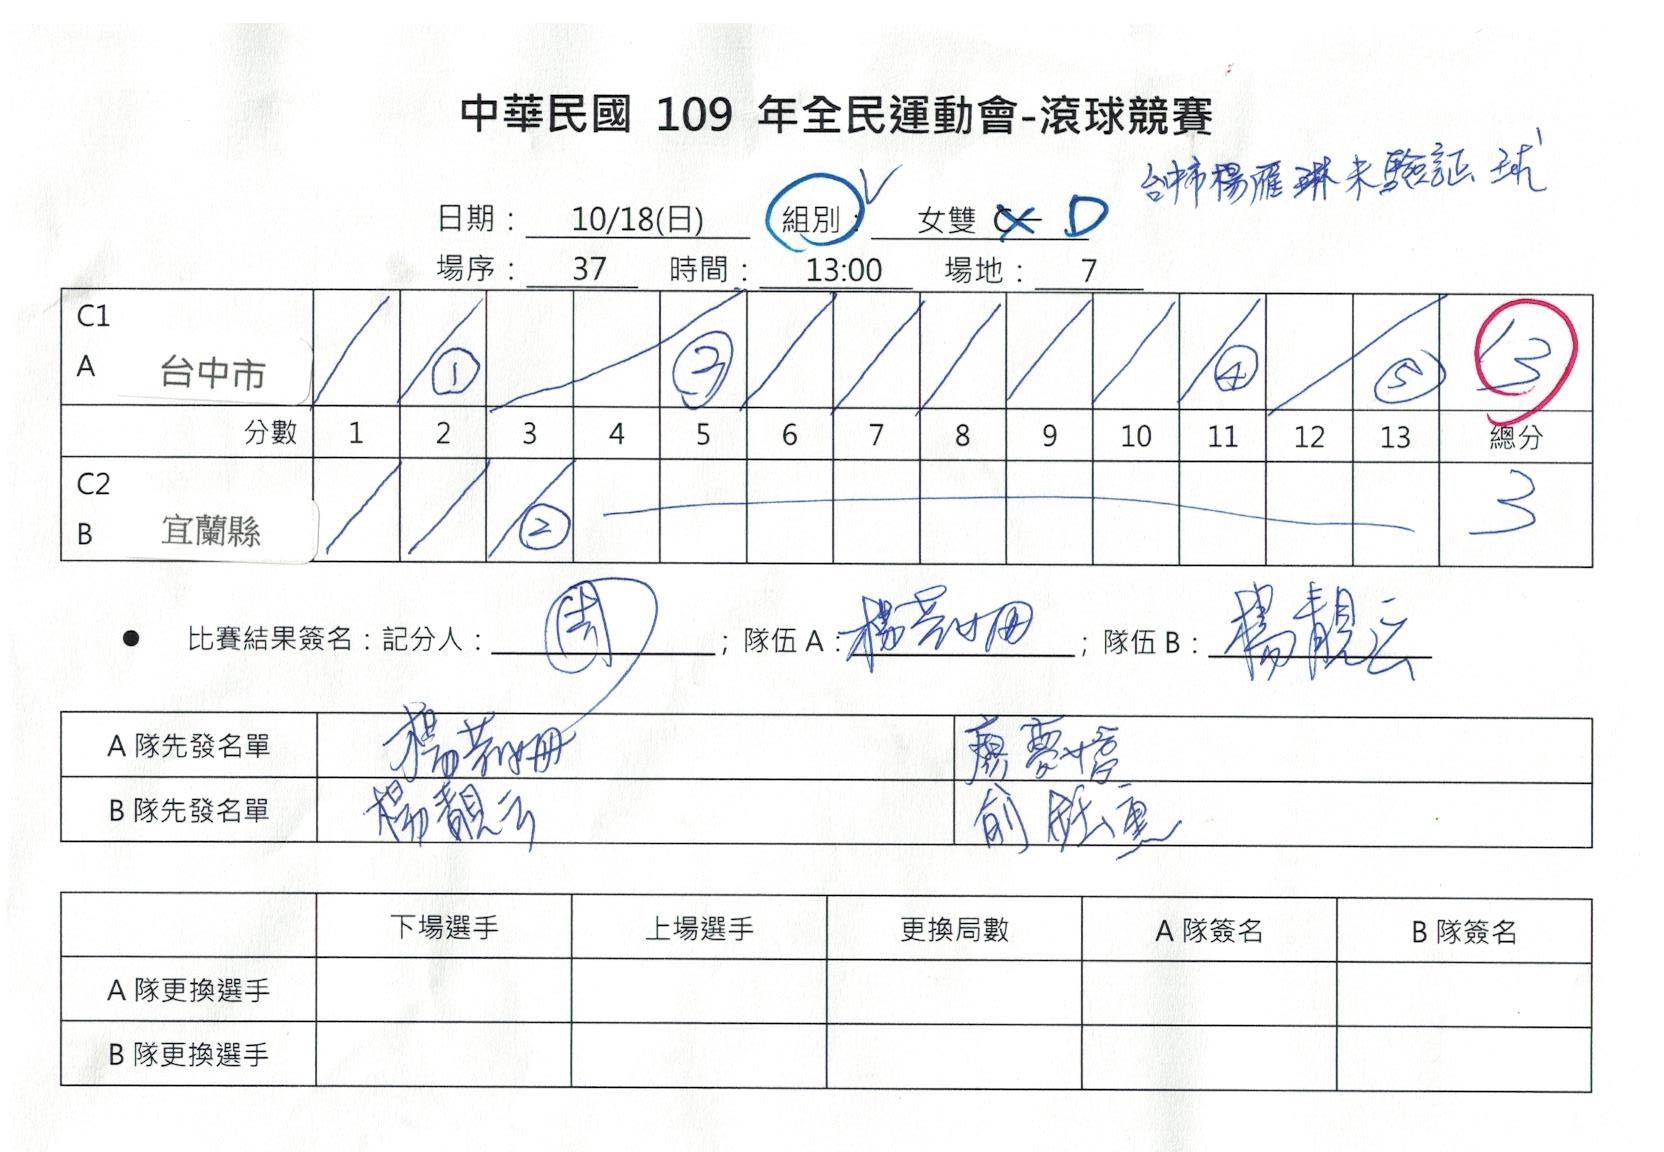 中華民國 109 年全民運動會-滾球競賽
台中市楊雁琳未驗証 球
日期： 10/18(日) 組別： 女雙 C D
場序： 37 時間： 13:00 場地： 7
C1
A 台中市 ① ③ ④ ⑤ 13
分數 1 2 3 4 5 6 7 8 9 10 11 12 13 總分
C2
B 宜蘭縣 ② 3
● 比賽結果簽名：記分人： 周 ；隊伍 A： 楊 ；隊伍 B： 楊靚云
A 隊先發名單 楊 廖
B 隊先發名單 楊靚云 俞 惠
下場選手 上場選手 更換局數 A 隊簽名 B 隊簽名
A 隊更換選手
B 隊更換選手